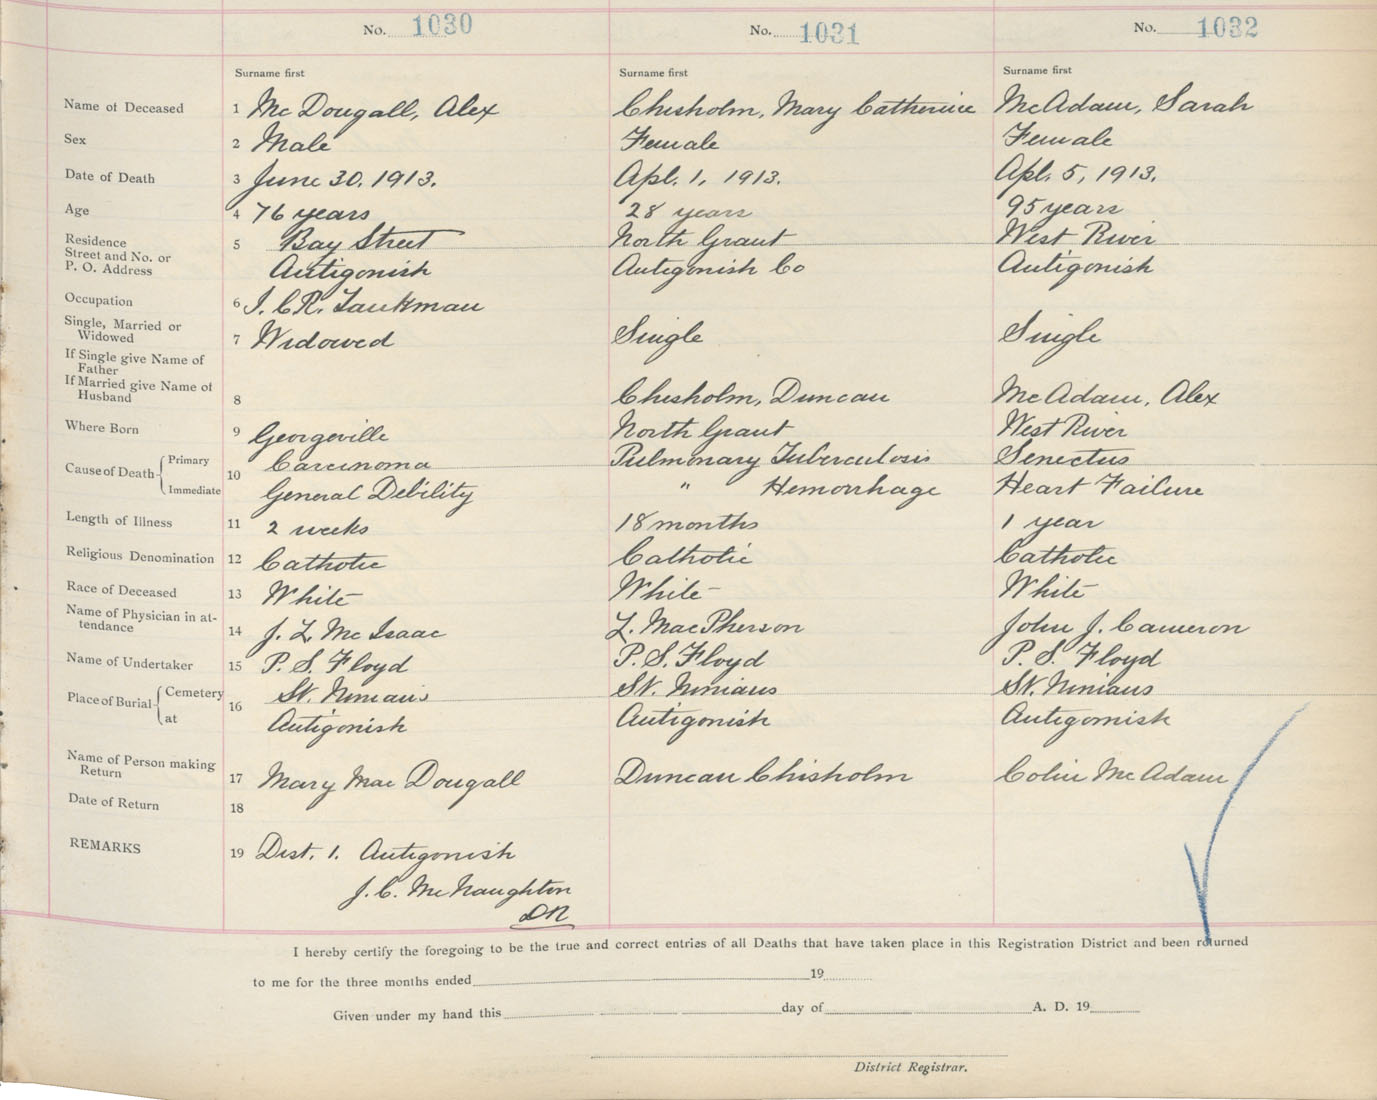 No. 1030 No. 1031 No. 1032
Surname first Surname first Surname first
Name of Deceased 1 Mc Dougall, Alex Chisholm, Mary Catherine McAdam, Sarah
Sex 2 Male Female Female
Date of Death 3 June 30. 1913. Apl. 1, 1913. Apl. 5, 1913.
Age 4 76 years 28 years 95 years
Residence 5 Bay Street North Grant West River
Street and No. or
P. O. Address Antigonish Antigonish Co Antigonish
Occupation 6 I. C. R. Tankman
Single, Married or
Widowed 7 Widowed Single Single
If Single give Name of
Father
If Married give Name of
Husband 8 Chisholm, Duncan McAdam, Alex
Where Born 9 Georgeville North Grant West River
Cause of Death Primary 10 Carcinoma Pulmonary Tuberculosis Senectus
Immediate General Debility " Hemorrhage Heart Failure
Length of Illness 11 2 weeks 18 months 1 year
Religious Denomination 12 Catholic Catholic Catholic
Race of Deceased 13 White White White
Name of Physician in at-
tendance 14 J. L. Mc Isaac L. MacPherson John J. Cameron
Name of Undertaker 15 P. S. Floyd P. S. Floyd P. S. Floyd
Place of Burial Cemetery 16 St. Ninians St. Ninians St. Ninians
at Antigonish Antigonish Antigonish
Name of Person making
Return 17 Mary Mac Dougall Duncan Chisholm Colin McAdam
Date of Return 18
REMARKS 19 Dist. 1. Antigonish
J. C. McNaughton
DR
I hereby certify the foregoing to be the true and correct entries of all Deaths that have taken place in this Registration District and been returned
to me for the three months ended 19
Given under my hand this day of A. D. 19
District Registrar.